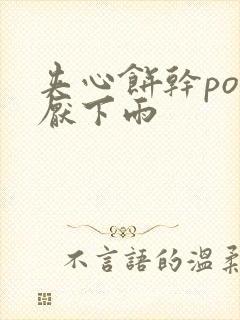 夹心餅幹po
厭下雨
不言語的温柔